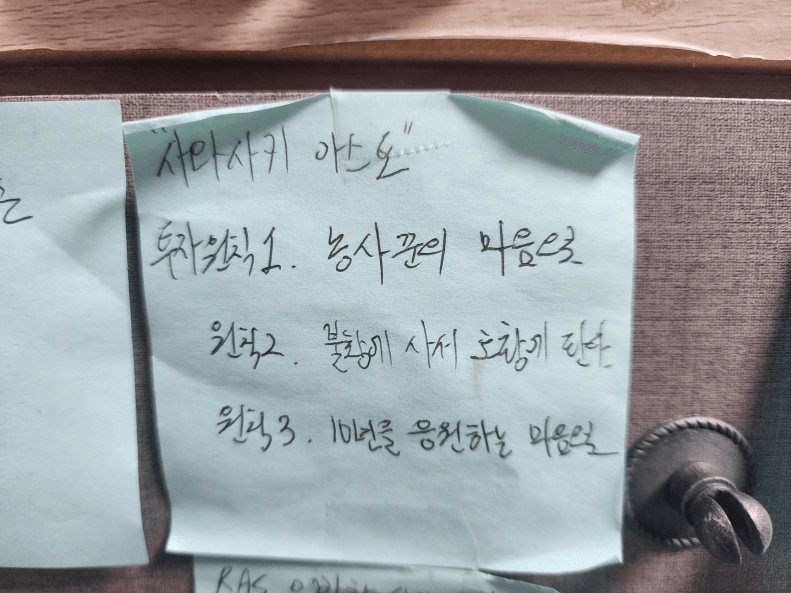 "사와사키 아스토"
투자원칙1. 농사꾼의 마음으로
원칙2. 불황에 사서 호황에 판다
원칙3. 10년을 응원하는 마음으로
RAS